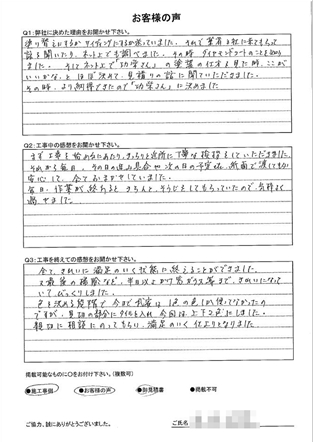 お客様の声
Q1:弊社に決めた理由をお聞かせ下さい。
塗り替えにするかサイディングにするか迷っていました。それで業者を社に来てもらって
話を聞いたり、ネット上でも調べてみました。その時、ダイヤモンドコートのことを知り
ました。そしてネット上で「功栄さん」の塗装の仕方を見た時、ここが
いいかなと、ほぼ決めて、見積りの話に聞いていただきました。
その時、より納得できたので「功栄さん」に決めました
Q2:工事中の感想をお聞かせ下さい。
まず工事を始めるにあたり、きっちりと近所に丁寧な挨拶をしていただきました。
それから毎日、その日の進み具合や次の日の予定等、紙面で渡して下さり
安心して、全ておまかせしていました。
毎日、作業が終わると、きちんと、そうじをしてもらっていたので気持ちよく
過せました。
Q3:工事を終えての感想をお聞かせ下さい。
全て、きれいに満足のいく状態に終えることができました。
又最後の掃除など、半日以上かけ窓ガラス等まで、きれいになって
いて、びっくりしました。
色を決める段階で今まで我家は1色の色しか使ってなかったの
ですが、見切の部分にタイルを入れ今回は上下2色にしました。
親切に相談にのってもらい、満足のいく仕上りとなりました
掲載可能なものに〇をお付けて下さい。(複数可)
●施工事例 ●お客様の声 ●御見積書 ●掲載不可
ご協力、誠にありがとうございました。 ご氏名